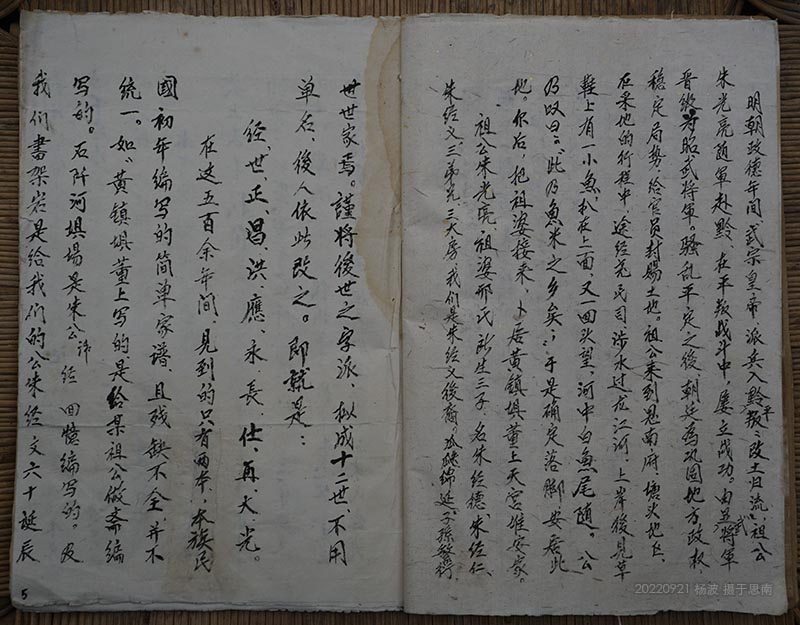 明朝政德年间，武宗皇帝，派兵入黔平叛，改土归流，祖公
朱光亮随军赴黔，在平叛战斗中，屡立战功。由武将军
晋级为昭武将军。骚乱平定之後，朝廷為巩固地方政权
稳定局势，给官员封赐土地。祖公来到思南府，塘头地区，
在采地的行程中，途经羌民司涉水过龙江河，上岸後見草
鞋上有一小魚，扒在上面，又一回头望，河中白魚尾随。公
乃叹曰。“此乃魚米之乡矣”，于是确定落脚安居此
地。尔后，把祖婆接来，卜居黄镇垻董上天宫堆安家。
祖公朱光亮，祖婆邢氏，所生三子，名朱经德、朱经仁、
朱经义三弟兄，三大房，我们是朱经义後裔。瓜瓞绵延，子孫發祥，
世世家焉。謹將後世之字派，拟成十二世，不用
单名，後人依此改之。即就是：
经、世、正、昌、洪、應、永、長、仕、再、大、光。
在这五百余年间，見到的只有两本，本族民
國初年编写的简单家谱，且残缺不全，并不
统一。如“黄镇垻董上写的，是给某祖公做斋编
写的。石阡河垻場是朱公讳经 回憶编写的。及
我们書架岩是给我们的公朱经文六十誕辰
5
20220921 杨波 摄于思南